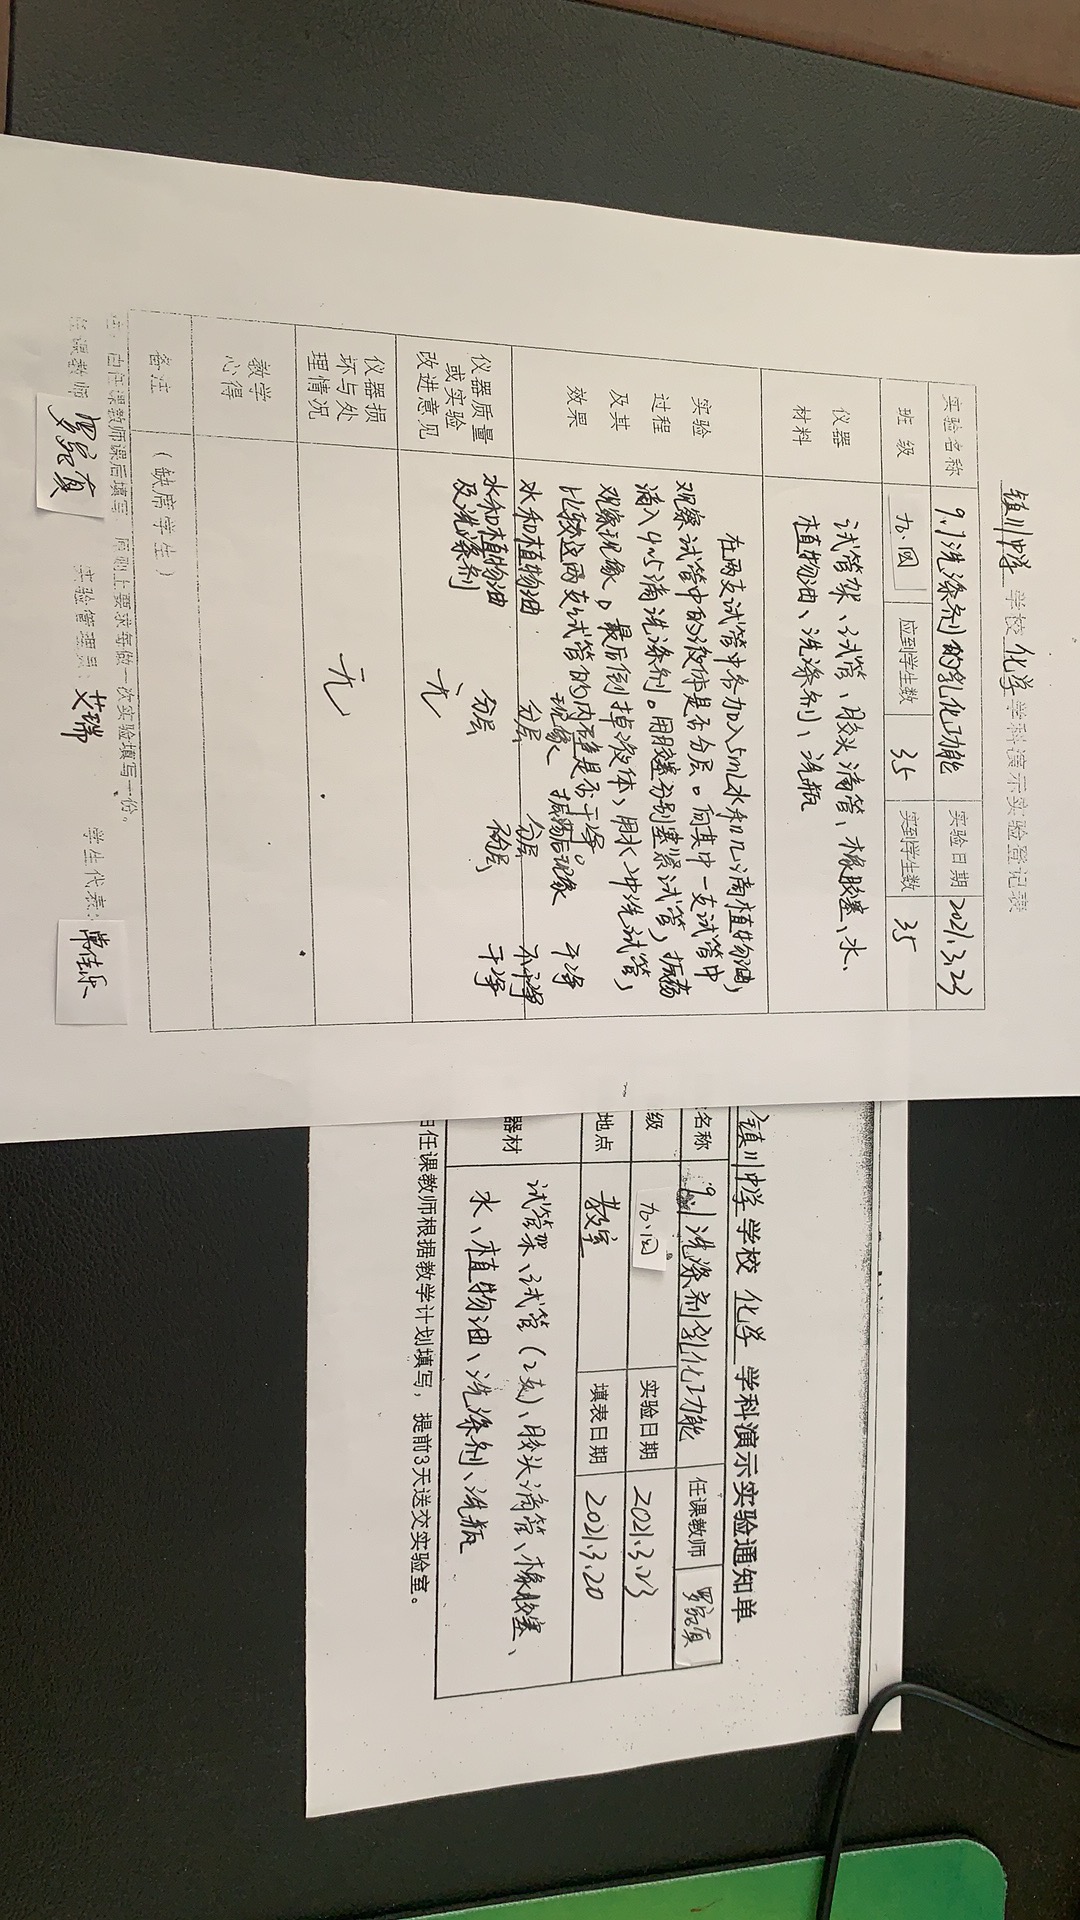 镇川中学 学校 化学 学科演示实验登记表
实验名称 9.1洗涤剂的乳化功能 实验日期 2021.3.23
班级 九.四 应到学生数 35 实到学生数 35
仪器
材料
试管架、试管、胶头滴管、橡胶塞、水、
植物油、洗涤剂、洗瓶
实验
过程
及其
效果
在两支试管中各加入5mL水和几滴植物油,
观察试管中的液体是否分层。向其中一支试管中
滴入4~5滴洗涤剂。用胶塞分别塞紧试管,振荡
观察现象。最后倒掉液体、用水冲洗试管,
比较这两支试管的内壁是否干净。
现象 振荡后现象 干净
水和植物油 分层 分层 不干净
水和植物油 分层 不分层 干净
及洗涤剂
仪器质量
或实验
改进意见
无
仪器损
坏与处
理情况
无
教学
心得
备注
(缺席学生)
注:由任课教师课后填写,原则上要求每做一次实验填写一份。
任课教师 实验管理员:艾瑞 学生代表:
镇川中学 学校 化学 学科演示实验通知单
名称 9.1洗涤剂乳化功能 任课教师
级 九.四 实验日期 2021.3.23
地点 教室 填表日期 2021.3.20
器材
试管架、试管(2支)、胶头滴管、橡胶塞、
水、植物油、洗涤剂、洗瓶
由任课教师根据教学计划填写,提前3天送交实验室。